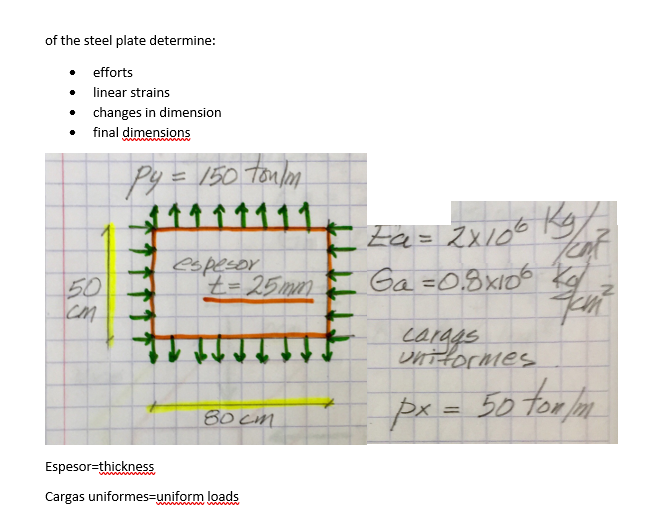 of the steel plate determine:
• efforts
• linear strains
• changes in dimension
• final dimensions
Py = 150 ton/m
espesor
t = 25mm
50
cm
80 cm
Ea = 2x10⁶ Kg/cm²
Ga = 0.8x10⁶ Kg/cm²
cargas
uniformes
px = 50 ton/m
Espesor=thickness
Cargas uniformes=uniform loads